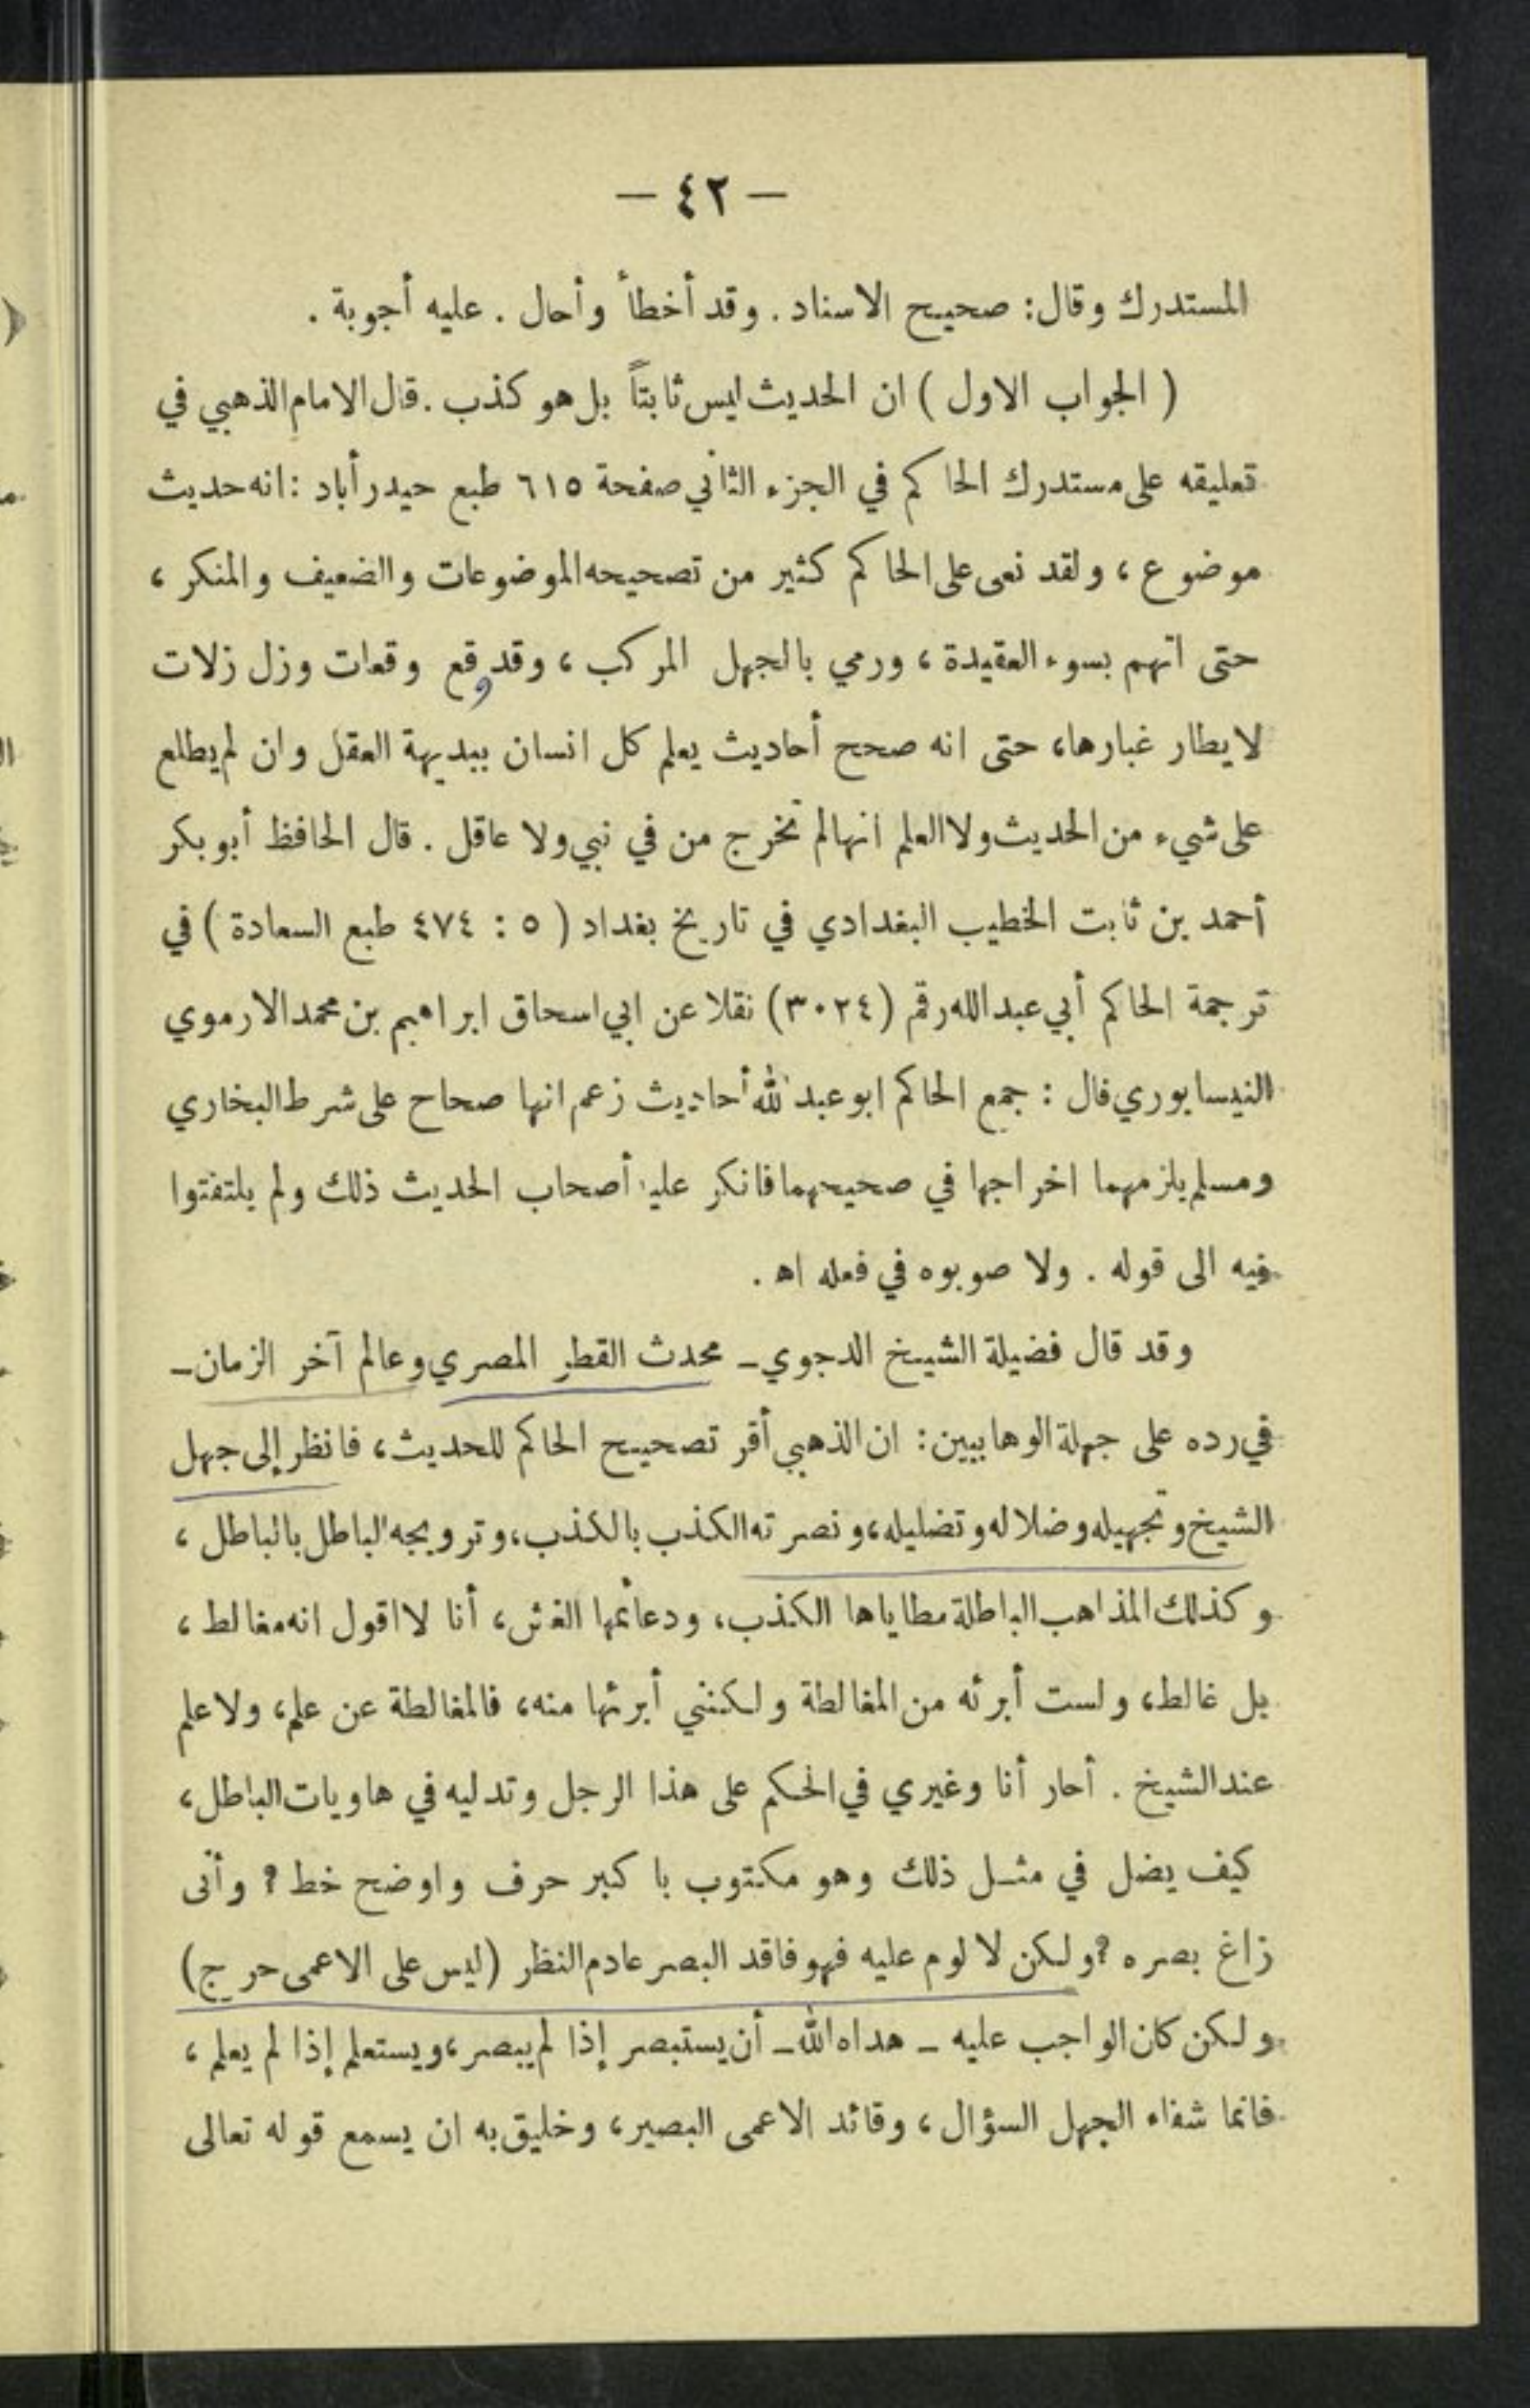 — ٤٢ —
المستدرك وقال: صحيح الاسناد . وقد أخطأ وأحال . عليه أجوبة .
( الجواب الاول ) ان الحديث ليس ثابتاً بل هو كذب . قال الامام الذهبي في
تعليقه على مستدرك الحاكم في الجزء الثاني صفحة ٦١٥ طبع حيدر أباد : انه حديث
موضوع ، ولقد نعى على الحاكم كثير من تصحيحه الموضوعات والضعيف والمنكر ،
حتى اتهم بسوء العقيدة ، ورمي بالجهل المركب ، وقد وقع وقعات وزل زلات
لا يطار غبارها ، حتى انه صحح أحاديث يعلم كل انسان ببديهة العقل وان لم يطلع
على شيء من الحديث ولا العلم انها لم تخرج من في نبي ولا عاقل . قال الحافظ أبو بكر
أحمد بن ثابت الخطيب البغدادي في تاريخ بغداد ( ٥ : ٤٧٤ طبع السعادة ) في
ترجمة الحاكم أبي عبد الله رقم (٣٠٢٤) نقلا عن ابي اسحاق ابراهيم بن محمد الارموي
النيسابوري قال : جمع الحاكم ابو عبد الله أحاديث زعم انها صحاح على شرط البخاري
ومسلم يلزمهما اخراجها في صحيحهما فانكر عليه أصحاب الحديث ذلك ولم يلتفتوا
فيه الى قوله . ولا صوبوه في فعله اه .
وقد قال فضيلة الشيخ الدجوي ــ محدث القطر المصري وعالم آخر الزمان ــ
في رده على جهلة الوهابيين : ان الذهبي أقر تصحيح الحاكم للحديث ، فانظر إلى جهل
الشيخ وتجهيله وضلاله وتضليله ، ونصرته الكذب بالكذب ، وترويجه الباطل بالباطل ،
وكذلك المذاهب الباطلة مطاياها الكذب ، ودعائمها الغش ، أنا لا اقول انه مغالط ،
بل غالط ، ولست أبرئه من المغالطة ولكنني أبرئها منه ، فالمغالطة عن علم ، ولا علم
عند الشيخ . أحار أنا وغيري في الحكم على هذا الرجل وتدليه في هاويات الباطل ،
كيف يضل في مثل ذلك وهو مكتوب باكبر حرف واوضح خط ؟ وأنى
زاغ بصره ؟ ولكن لا لوم عليه فهو فاقد البصر عادم النظر (ليس على الاعمى حرج)
ولكن كان الواجب عليه ــ هداه الله ــ أن يستبصر إذا لم يبصر ، ويستعلم إذا لم يعلم ،
فانما شفاء الجهل السؤال ، وقائد الاعمى البصير ، وخليق به ان يسمع قوله تعالى